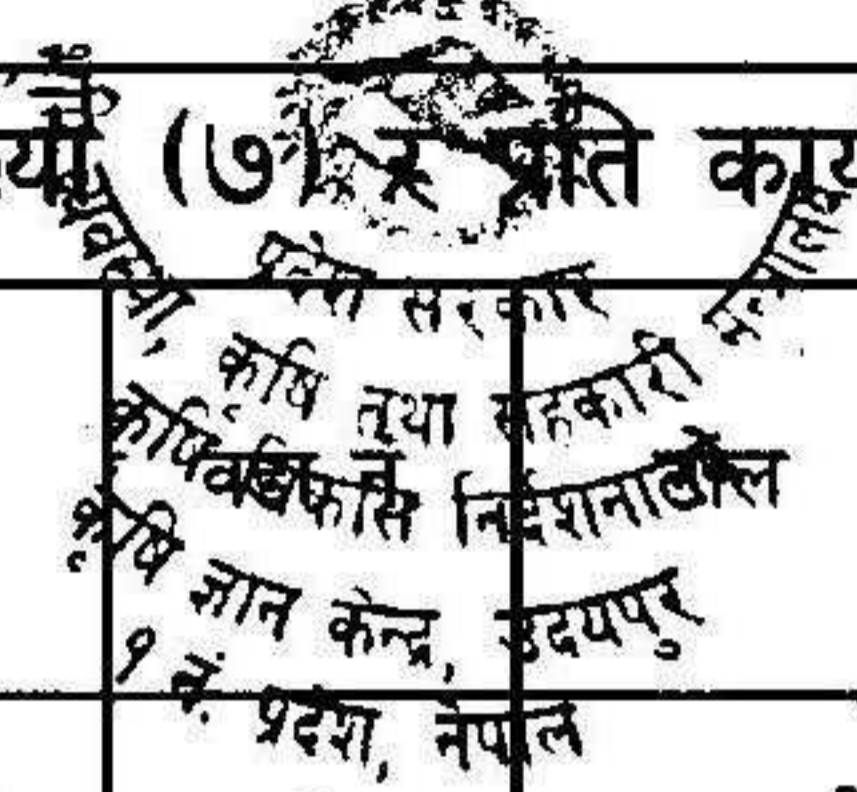 (७) र प्रति
प्रदेश सरकार
व्यवस्था, कृषि तथा सहकारी मन्त्रालय
कृषि विकास निर्देशनालय
कृषि ज्ञान केन्द्र, उदयपुर
१ नं. प्रदेश, नेपाल